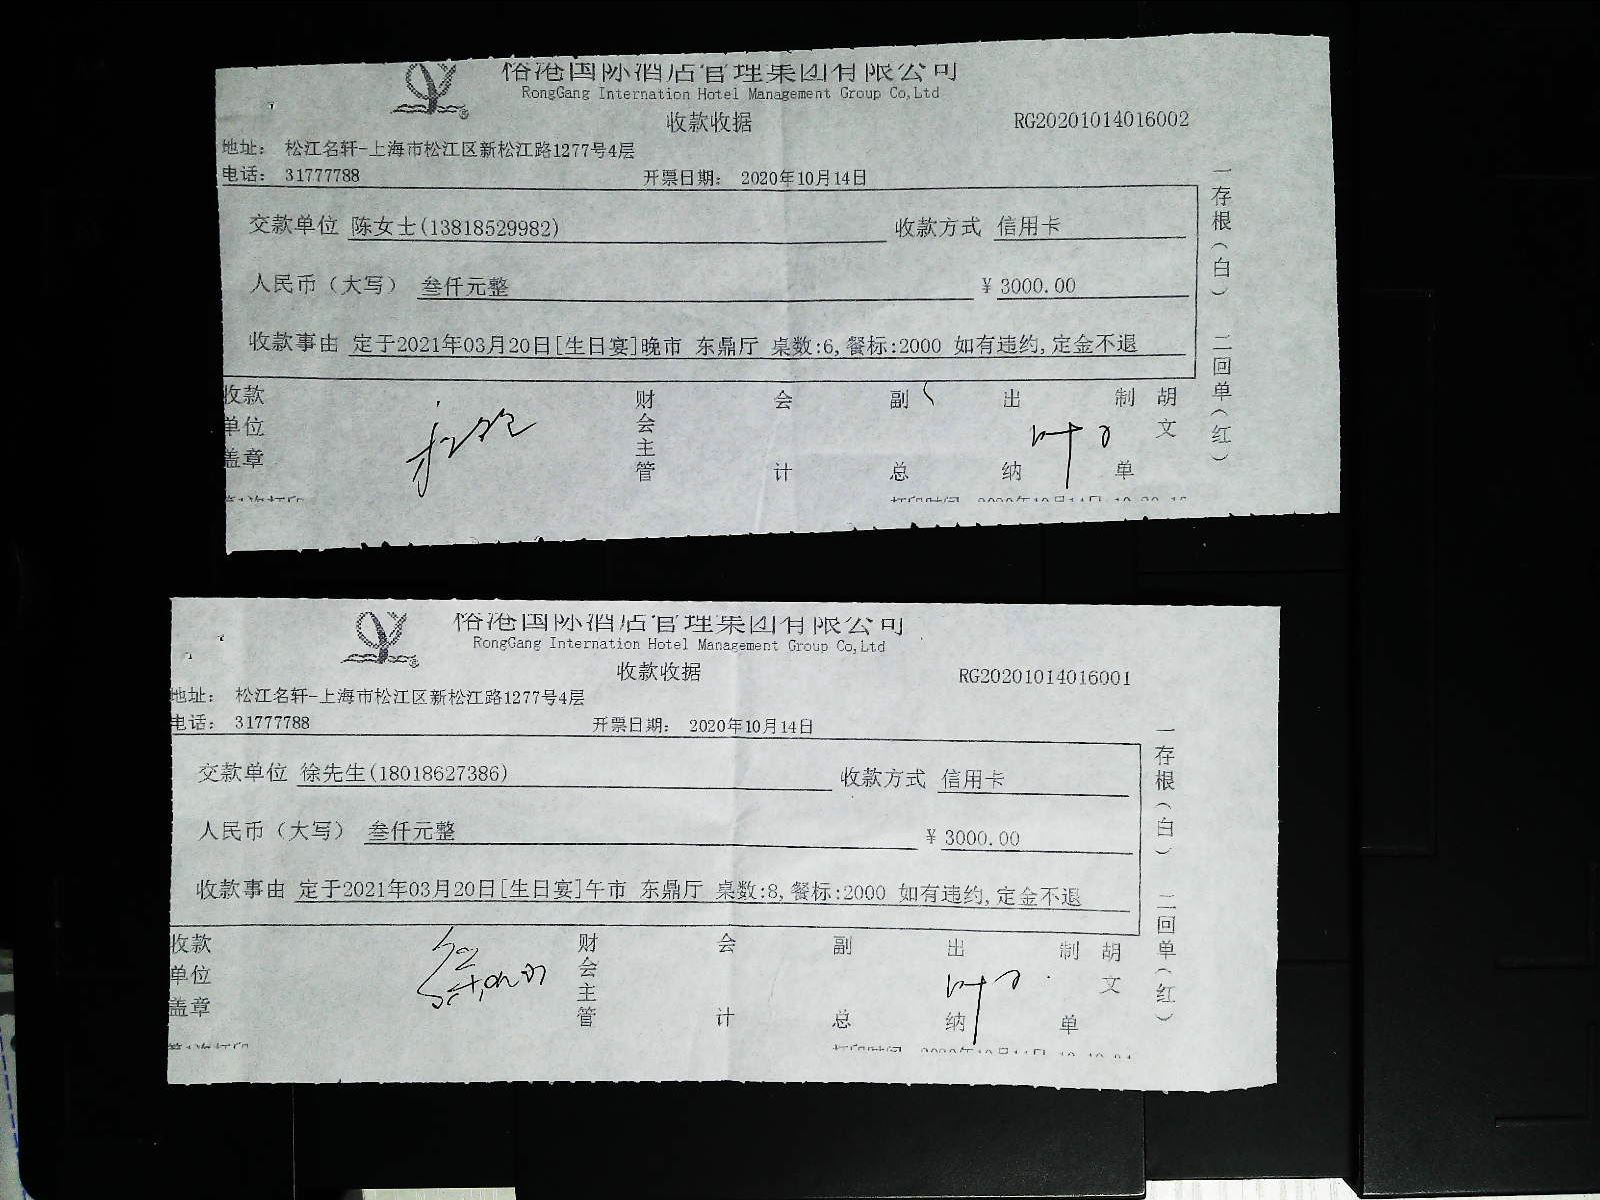 榕港国际酒店管理集团有限公司
RongGang Internation Hotel Management Group Co,Ltd
收款收据
RG20201014016002
地址： 松江名轩-上海市松江区新松江路1277号4层
电话： 31777788 开票日期： 2020年10月14日
交款单位 陈女士(13818529982) 收款方式 信用卡
人民币（大写） 叁仟元整 ¥ 3000.00
收款事由 定于2021年03月20日[生日宴]晚市 东鼎厅 桌数:6,餐标:2000 如有违约,定金不退
收款单位盖章 财会主管 会计 副总 出纳 制单 胡文
一存根（白） 二回单（红）
第1次打印 打印时间 2020年10月14日
榕港国际酒店管理集团有限公司
RongGang Internation Hotel Management Group Co,Ltd
收款收据
RG20201014016001
地址： 松江名轩-上海市松江区新松江路1277号4层
电话： 31777788 开票日期： 2020年10月14日
交款单位 徐先生(18018627386) 收款方式 信用卡
人民币（大写） 叁仟元整 ¥ 3000.00
收款事由 定于2021年03月20日[生日宴]午市 东鼎厅 桌数:8,餐标:2000 如有违约,定金不退
收款单位盖章 财会主管 会计 副总 出纳 制单 胡文
一存根（白） 二回单（红）
第1次打印 打印时间 2020年10月14日